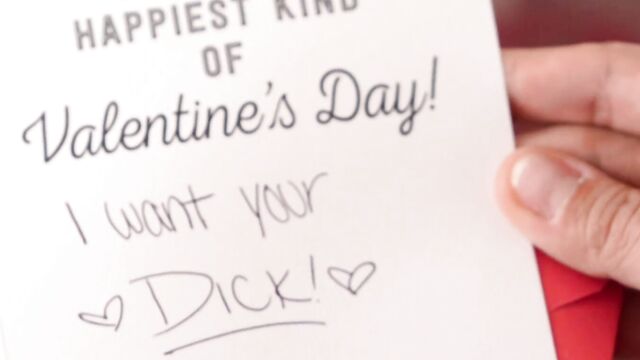 HAPPIEST KIND
OF
Valentine's Day!
I want your
DICK!